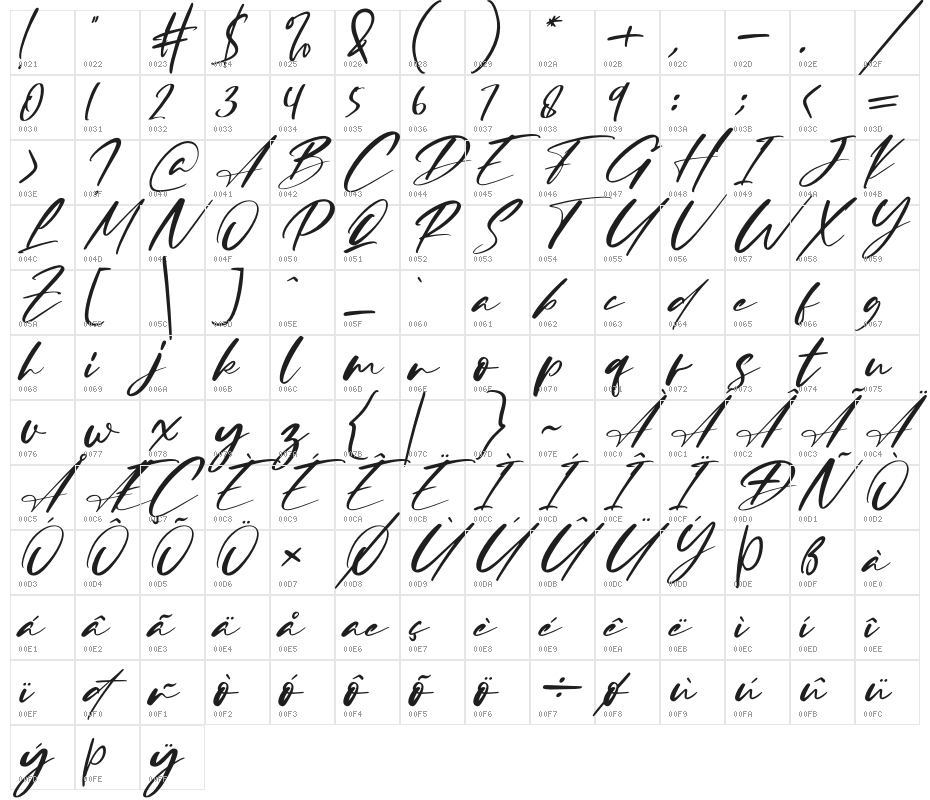 ! " # $ % & ( ) * + , - . /
0021 0022 0023 0024 0025 0026 0028 0029 002A 002B 002C 002D 002E 002F
0 1 2 3 4 5 6 7 8 9 : ; < =
0030 0031 0032 0033 0034 0035 0036 0037 0038 0039 003A 003B 003C 003D
> ? @ A B C D E F G H I J K
003E 003F 0040 0041 0042 0043 0044 0045 0046 0047 0048 0049 004A 004B
L M N O P Q R S T U V W X Y
004C 004D 004E 004F 0050 0051 0052 0053 0054 0055 0056 0057 0058 0059
Z [ \ ] ^ _ ` a b c d e f g
005A 005B 005C 005D 005E 005F 0060 0061 0062 0063 0064 0065 0066 0067
h i j k l m n o p q r s t u
0068 0069 006A 006B 006C 006D 006E 006F 0070 0071 0072 0073 0074 0075
v w x y z { | } ~ À Á Â Ã Ä
0076 0077 0078 0079 007A 007B 007C 007D 007E 00C0 00C1 00C2 00C3 00C4
Å Æ Ç È É Ê Ë Ì Í Î Ï Ð Ñ Ò
00C5 00C6 00C7 00C8 00C9 00CA 00CB 00CC 00CD 00CE 00CF 00D0 00D1 00D2
Ó Ô Õ Ö × Ø Ù Ú Û Ü Ý Þ ß à
00D3 00D4 00D5 00D6 00D7 00D8 00D9 00DA 00DB 00DC 00DD 00DE 00DF 00E0
á â ã ä å æ ç è é ê ë ì í î
00E1 00E2 00E3 00E4 00E5 00E6 00E7 00E8 00E9 00EA 00EB 00EC 00ED 00EE
ï ð ñ ò ó ô õ ö ÷ ø ù ú û ü
00EF 00F0 00F1 00F2 00F3 00F4 00F5 00F6 00F7 00F8 00F9 00FA 00FB 00FC
ý þ ÿ
00FD 00FE 00FF